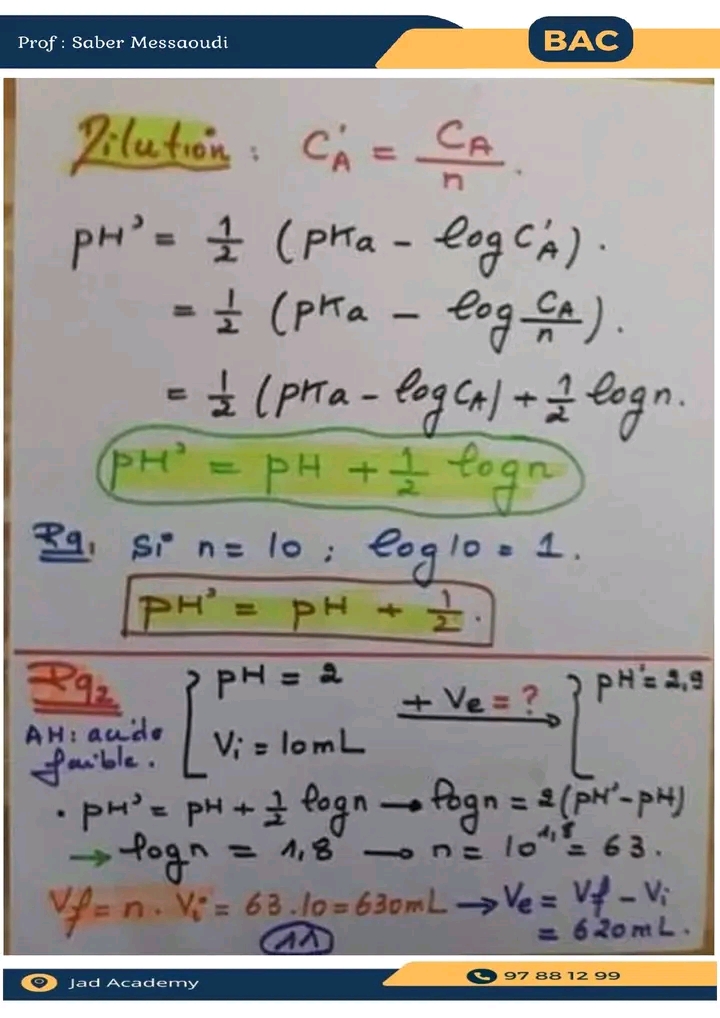 Prof : Saber Messaoudi
BAC
Dilution : C'A = CA / n .
pH' = 1/2 (pKa - log C'A) .
= 1/2 (pKa - log CA/n) .
= 1/2 (pKa - log CA) + 1/2 log n .
pH' = pH + 1/2 log n
Rq1 Si n = 10 ; log 10 = 1 .
pH' = pH + 1/2 .
Rq2 { pH = 2 + Ve = ? → { pH' = 2,9
AH : acide faible . Vi = 10 mL
• pH' = pH + 1/2 log n → log n = 2 (pH' - pH)
→ log n = 1,8 → n = 10^1,8 = 63 .
Vf = n . Vi = 63 . 10 = 630 mL → Ve = Vf - Vi
= 620 mL .
11
Jad Academy
97 88 12 99